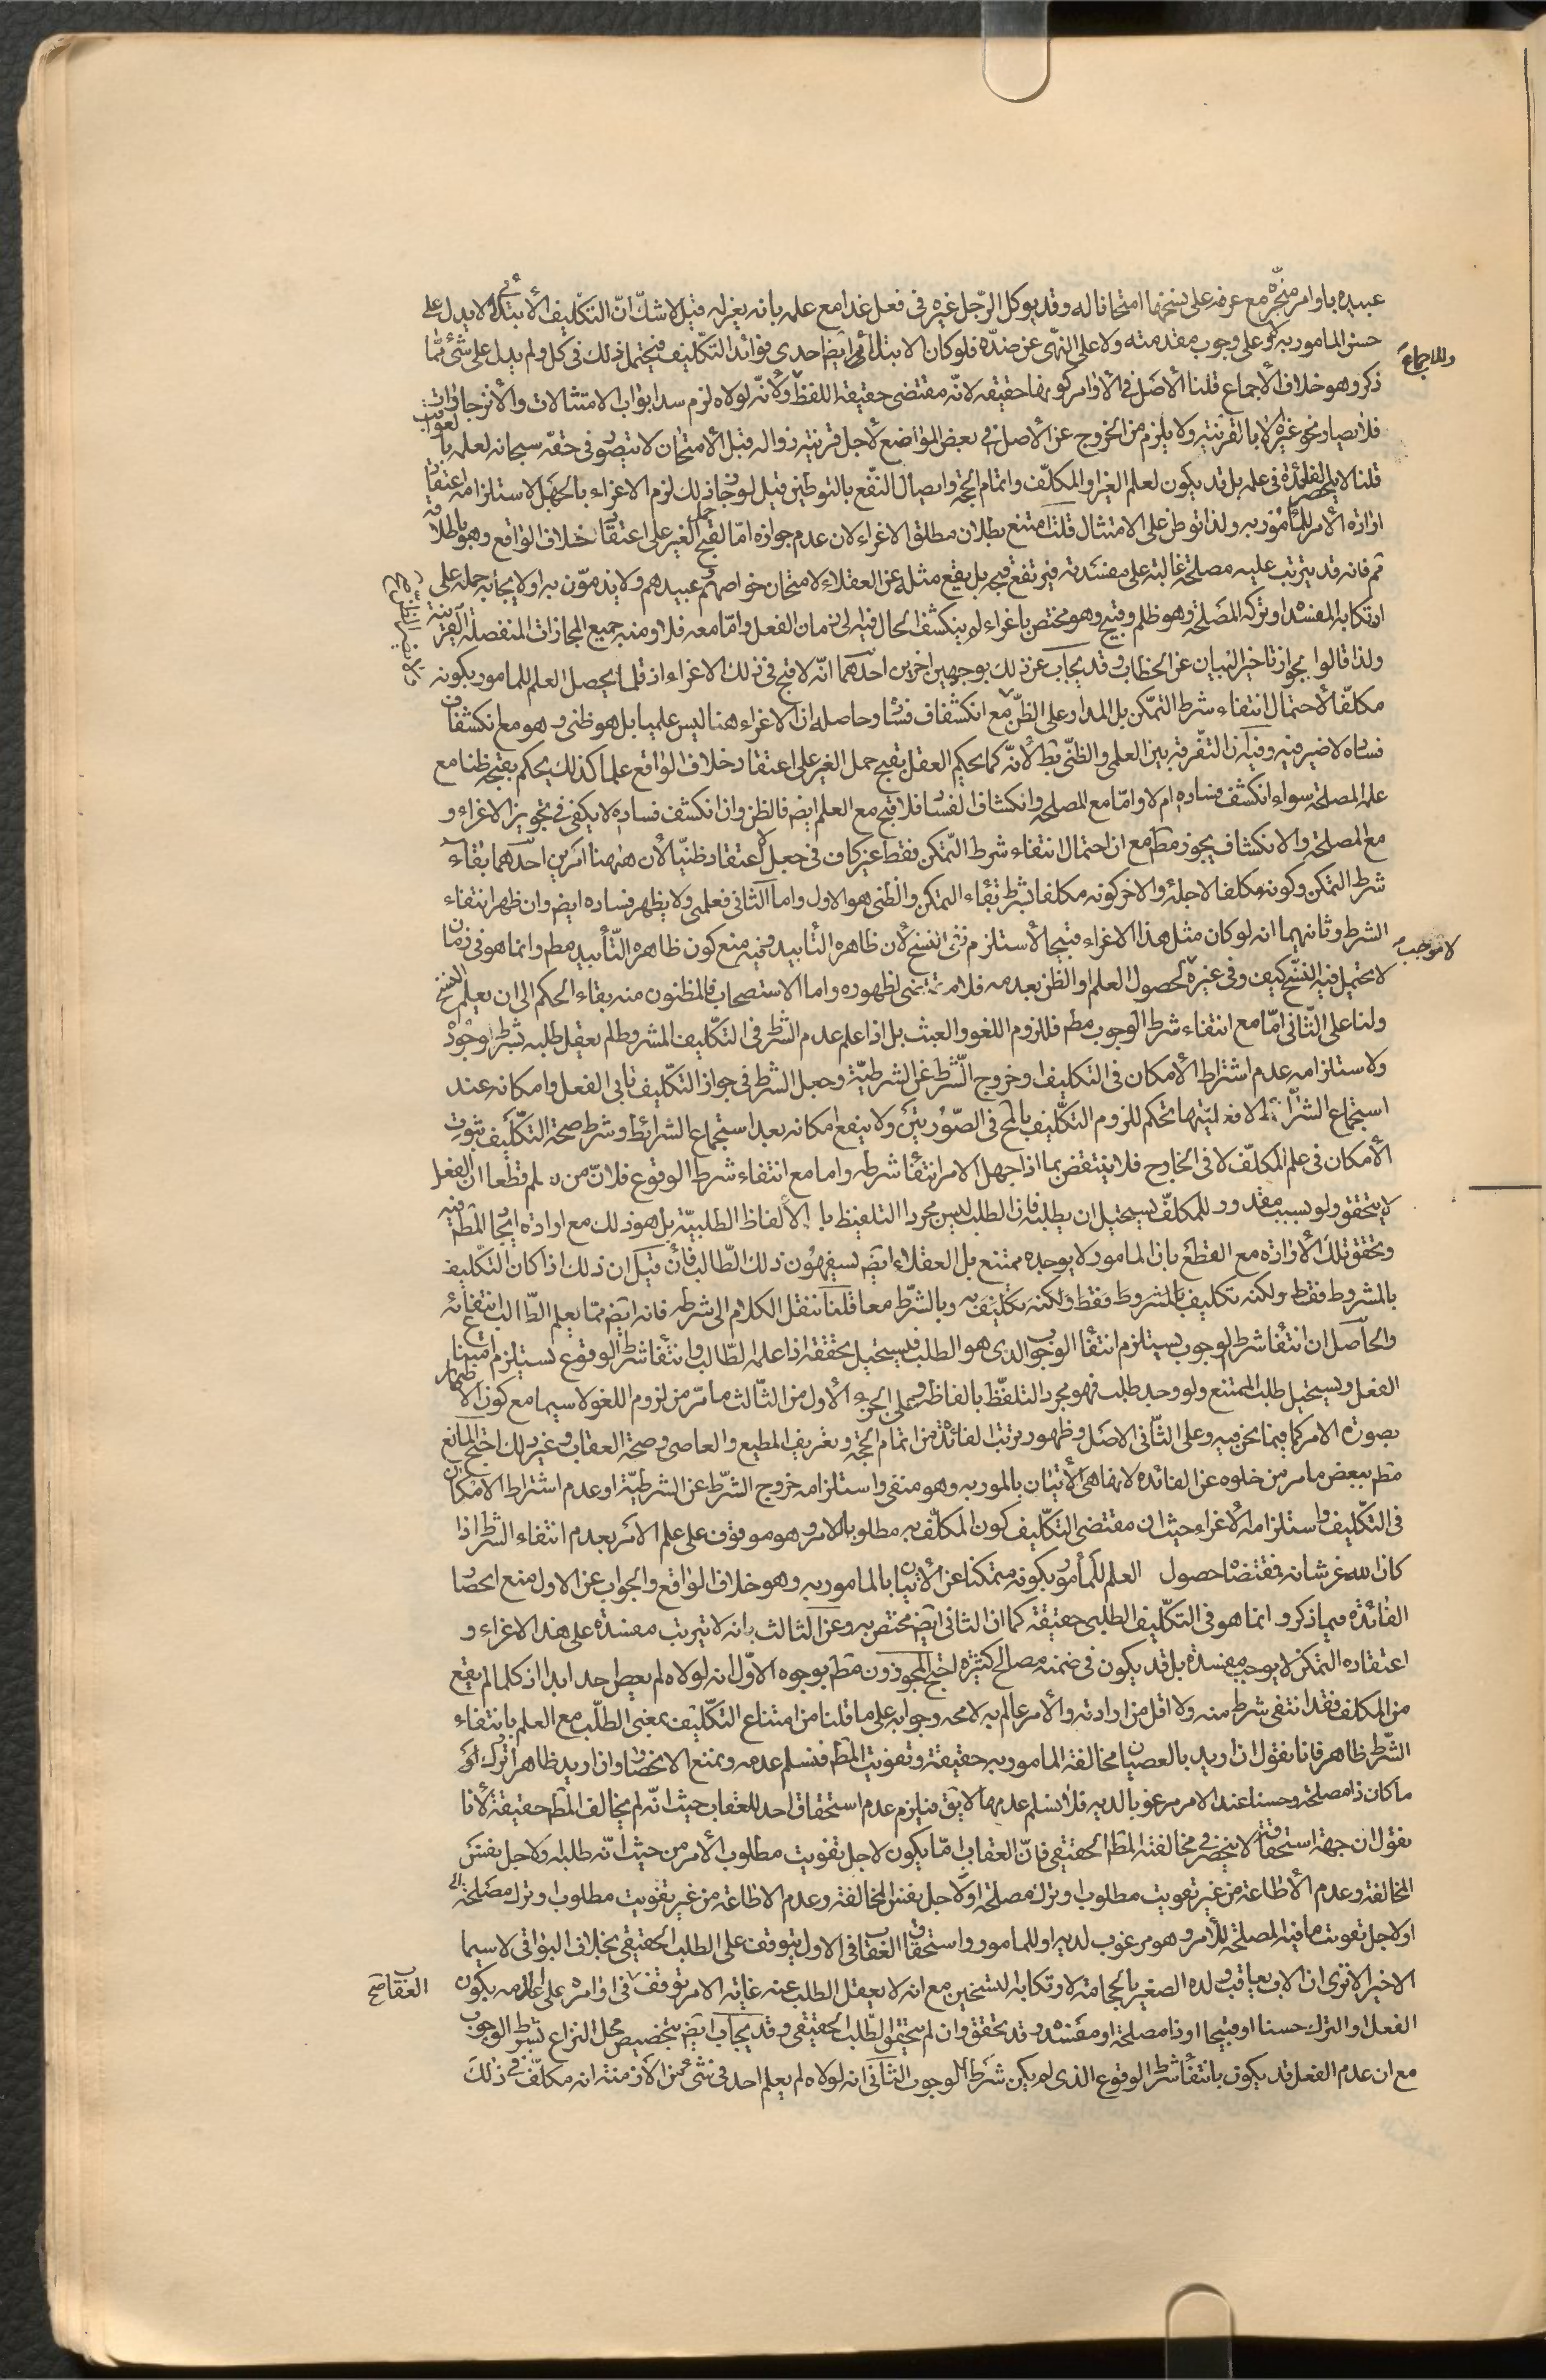 عبيده باوامر منجزة مع عزمه على نسخها امتحانا له وقد يوكل الرجل غيره فى فعل غدا مع علمه بانه يعزله قيل لا شك ان التكليف الابتلائى لا يدل على
حسن المامور به ولا على وجوب مقدمته ولا على النهى عن ضده فلو كان الابتلائى ايض احدى فوائد التكليف فيحتمل ذلك فى كل ولم يدل على شئ مما
وللاجماع
ذكر وهو خلاف الاجماع قلنا الاصل فى الاوامر كونها حقيقه لانه مقتضى حقيقة اللفظ ولانه لولاه لزم سد ابواب الامتثالات والانزجارات
فلا يصار نحو غيره الا بالقرنية ولا يلزم من الخروج عن الاصل فى بعض المواضع لاجل قرنية زواله قيل الامتحان لا يتصور فى حقه سبحانه لعلمه بالعواقب
قلنا لا ينحصر الفائدة فى علمه بل قد يكون لعلم الغير او المكلف واتمام الحجة وايصال النفع بالتوطين قيل لو جاز ذلك لزم الاغراء بالجهل لاستلزامه اعتقاد
ارادة الامر للمامور به ولذا توطن على الامتثال قلنا امتنع بطلان مطلق الاغراء لان عدم جوازه اما لقبح حمل الغير على اعتقاد خلاف الواقع وهو باطلاقه
ثم فانه قد يترتب عليه مصلحة غالبة على مفسدته فيرتفع قبحه بل يقع مثله عن العقلاء لامتحان خواصهم وعبيدهم ولا يذمون به او لايجابه حمله على
ارتكابه المفسدة او تركه المصلحة وهو ظلم وقبيح وهو مختص باغراء لم ينكشف الحال فيه الى زمان الفعل واما معه فلا ومنه جميع المجازات المنفصلة القرينة
ولذا قالوا بجواز تاخير البيان عن الخطاب وقد يجاب عن ذلك بوجهين اخرين احدهما انه لا قبح فى ذلك الاغراء اذ قلما يحصل العلم للمامور بكونه
مكلفا لاحتمال انتفاء شرط التمكن بل المدار على الظن مع انكشاف فساده وحاصله ان الاغراء هنا ليس علميا بل هو ظنى وهو مع انكشاف
فساده لا ضير فيه وفيه ان التفرقة بين العلمى والظنى بط لانه كما يحكم العقل بقبح حمل الغير على اعتقاد خلاف الواقع علما كذلك يحكم بقبحه ظنا مع
علم المصلحة سواء انكشف فساده ام لا واما مع المصلحة وانكشاف الفساد فلا قبح مع العلم ايض فالظن وان انكشف فساده لا يكفى فى تجويز الاغراء و
مع المصلحة والانكشاف يجوز مطم مع ان احتمال انتفاء شرط التمكن فقط غير كاف فى جعل الاعتقاد ظنيا لان ههنا امرين احدهما بقاء
شرط التمكن وكونه مكلفا لاجله والاخر كونه مكلفا بشرط بقاء التمكن والظنى هو الاول واما الثانى فعلمى ولا يظهر فساده ايض وان ظهر انتفاء
الشرط وثانيهما انه لو كان مثل هذا الاغراء قبيحا لاستلزم نفى النسخ لان ظاهره التأبيد وفيه منع كون ظاهره التأبيد مطم وانما هو فى زمان
لا موجب
لا يحتمل فيه النسخ كيف وفى غيره لحصول العلم او الظن بعدمه فلا مقتضى لظهوره واما الاستصحاب فالمظنون منه بقاء الحكم الى ان يعلم النسخ
ولنا على الثانى اما مع انتفاء شرط الوجوب مطم فللزوم اللغو والعبث بل اذا علم عدم الشرط فى التكليف المشروط لم يعقل طلبه بشرط وجوده
ولاستلزامه عدم اشتراط الامكان فى التكليف او خروج الشرط عن الشرطية وجعل الشرط فى جواز التكليف تابى الفعل وامكانه عند
استجماع الشرائط لا فعليتها تحكم للزوم التكليف بالمح فى الصورتين ولا ينفع امكانه بعد استجماع الشرائط وشرط صحة التكليف ثبوت
الامكان فى علم المكلف لا فى الخارج فلا ينتقض بما اذا جهل الامر انتفاء شرطه واما مع انتفاء شرط الوقوع فلان من يعلم قطعا ان الفعل
لا يتحقق ولو بسبب مقدور للمكلف يستحيل ان يطلبه فان الطلب ليس مجرد التلفيظ بالالفاظ الطلبية بل هو ذلك مع ارادة ايجاد المطم فيه
وتحقق تلك الارادة مع القطع بان المامور لا يوجده ممتنع بل العقلاء ايض يسفهون ذلك الطالب فان قيل ان ذلك اذا كان التكليف
بالمشروط فقط ولكنه تكليف بالمشروط فقط ولكنه تكليف به وبالشرط معا قلنا ننقل الكلام الى شرطه فانه ايض مما يعلم الطالب انتفائه
والحاصل ان انتفاء شرط الوجوب يستلزم انتفاء الوجوب الذى هو الطلب فيستحيل تحققه اذا علمه الطالب وانتفاء شرط الوقوع يستلزم امتناع
الفعل ويستحيل طلب الممتنع ولو وجد طلب فهو مجرد التلفظ بالفاظه وعلى الجزء الاول من الثالث ما مر من لزوم اللغو لا سيما مع كون الاظهار
بصورة الامر كما فيما نحن فيه وعلى الثانى الاصل وظهور ترتب الفائدة من اتمام الحجة وتعريف المطيع والعاصى وصحة العقاب وغير ذلك احتج المانع
مطم ببعض ما مر من خلوه عن الفائدة لانها هى الاتيان بالمور به وهو منفى واستلزامه خروج الشرط عن الشرطية او عدم اشتراط الامكان
فى التكليف واستلزامه الاغراء حيث ان مقتضى التكليف كون المكلف به مطلوبا للامر وهو موقوف على علم الامر بعدم انتفاء الشرط اذا
كان الله عز شانه فمقتضاه حصول العلم للمأمور بكونه متمكنا عن الاتيان بالمامور به وهو خلاف الواقع والجواب عن الاول منع انحصار
الفائدة فيما ذكر وانما هو فى التكليف الطلبى حقيقة كما ان الثانى ايض مختص به وعن الثالث بانه لا يترتب مفسدة على هذا الاغراء و
اعتقاده التمكن لا يوجب مفسدة بل قد يكون فى ضمنه مصالح كثيرة احتج المجوزون مطم بوجوه الاول انه لولاه لم يعص احد ابدا اذ كلما لم يقع
من المكلف فقد انتفى شرط منه ولا اقل من ارادته والامر عالم به لا محه وجوابه على ما قلنا من امتناع التكليف بمعنى الطلب مع العلم بانتفاء
الشرط ظاهر فانا نقول ان اريد بالعصيان مخالفة المامور به حقيقة وتفويت المطم فنسلم عدمه ونمنع الانحصار وان اريد ظاهرا ترك
ما كان ذا مصلحة وحسنا عند الامر مرغوبا لديه فلا نسلم عدمها لا يق فيلزم عدم استحقاق احد للعقاب حيث انه لم يخالف المطم حقيقة لانا
نقول ان جهة استحقاقه لا ينحصر فى مخالفة المطم الحقيقى فان العقاب اما يكون لاجل تفويت مطلوب الامر من حيث انه طلبه او لاجل نفس
المخالفة وعدم الاطاعة من غير تفويت مطلوب او ترك مصلحة او لاجل نفس المخالفة وعدم الاطاعة من غير تفويت مطلوب او ترك مصلحة
او لاجل تفويت ما فيه المصلحة للأمر وهو مرغوب لديه او للمامور واستحقاق العقاب فى الاول يتوقف على الطلب الحقيقى بخلاف البواقى لا سيما
الاخير الا ترى ان الاب يعاقب ولده الصغير بالحجامة لارتكابه التسخين مع انه لا يعقل الطلب عنه غاية الامر توقف العقاب فى اوامره على اعلامه بكون
العقاب صح
الفعل او الترك حسنا او قبيحا او ذا مصلحة او مفسدة وقد تحقق وان لم يتحقق الطلب الحقيقى وقد يجاب ايض بتخصيص محل النزاع بشرط الوجوب
مع ان عدم الفعل قد يكون بانتفاء شرط الوقوع الذى لم يكن شرط الوجوب الثانى انه لولاه لم يعلم احد فى شئ من الازمنة انه مكلف فى ذلك